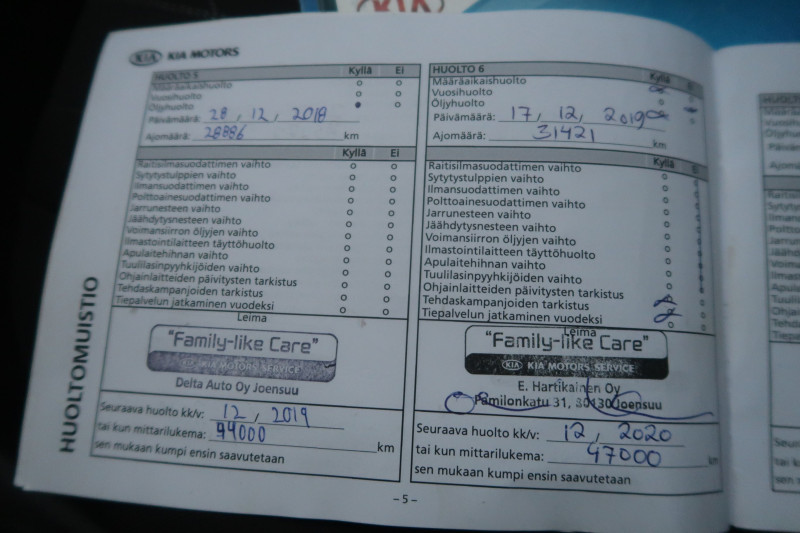 KIA
KIA MOTORS
HUOLTO 5 Kyllä Ei
Määräaikaishuolto
Vuosihuolto
Öljyhuolto
Päivämäärä: 28, 12, 2018
Ajomäärä: 28886 km
Kyllä Ei
Raitisilmasuodattimen vaihto
Sytytystulppien vaihto
Ilmansuodattimen vaihto
Polttoainesuodattimen vaihto
Jarrunesteen vaihto
Jäähdytysnesteen vaihto
Voimansiirron öljyjen vaihto
Ilmastointilaitteen täyttöhuolto
Apulaitehihnan vaihto
Tuulilasinpyyhkijöiden vaihto
Ohjainlaitteiden päivitysten tarkistus
Tehdaskampanjoiden tarkistus
Tiepalvelun jatkaminen vuodeksi
Leima
"Family-like Care"
KIA MOTORS SERVICE
Delta Auto Oy Joensuu
Seuraava huolto kk/v: 12, 2019
tai kun mittarilukema: 44000 km
sen mukaan kumpi ensin saavutetaan
HUOLTO 6 Kyllä Ei
Määräaikaishuolto
Vuosihuolto
Öljyhuolto
Päivämäärä: 17, 12, 2019
Ajomäärä: 31421 km
Kyllä Ei
Raitisilmasuodattimen vaihto
Sytytystulppien vaihto
Ilmansuodattimen vaihto
Polttoainesuodattimen vaihto
Jarrunesteen vaihto
Jäähdytysnesteen vaihto
Voimansiirron öljyjen vaihto
Ilmastointilaitteen täyttöhuolto
Apulaitehihnan vaihto
Tuulilasinpyyhkijöiden vaihto
Ohjainlaitteiden päivitysten tarkistus
Tehdaskampanjoiden tarkistus
Tiepalvelun jatkaminen vuodeksi
Leima
"Family-like Care"
KIA KIA MOTORS SERVICE
E. Hartikainen Oy
Pamilonkatu 31, 80130 Joensuu
Seuraava huolto kk/v: 12, 2020
tai kun mittarilukema: 47000 km
sen mukaan kumpi ensin saavutetaan
HUOLTOMUISTIO
- 5 -